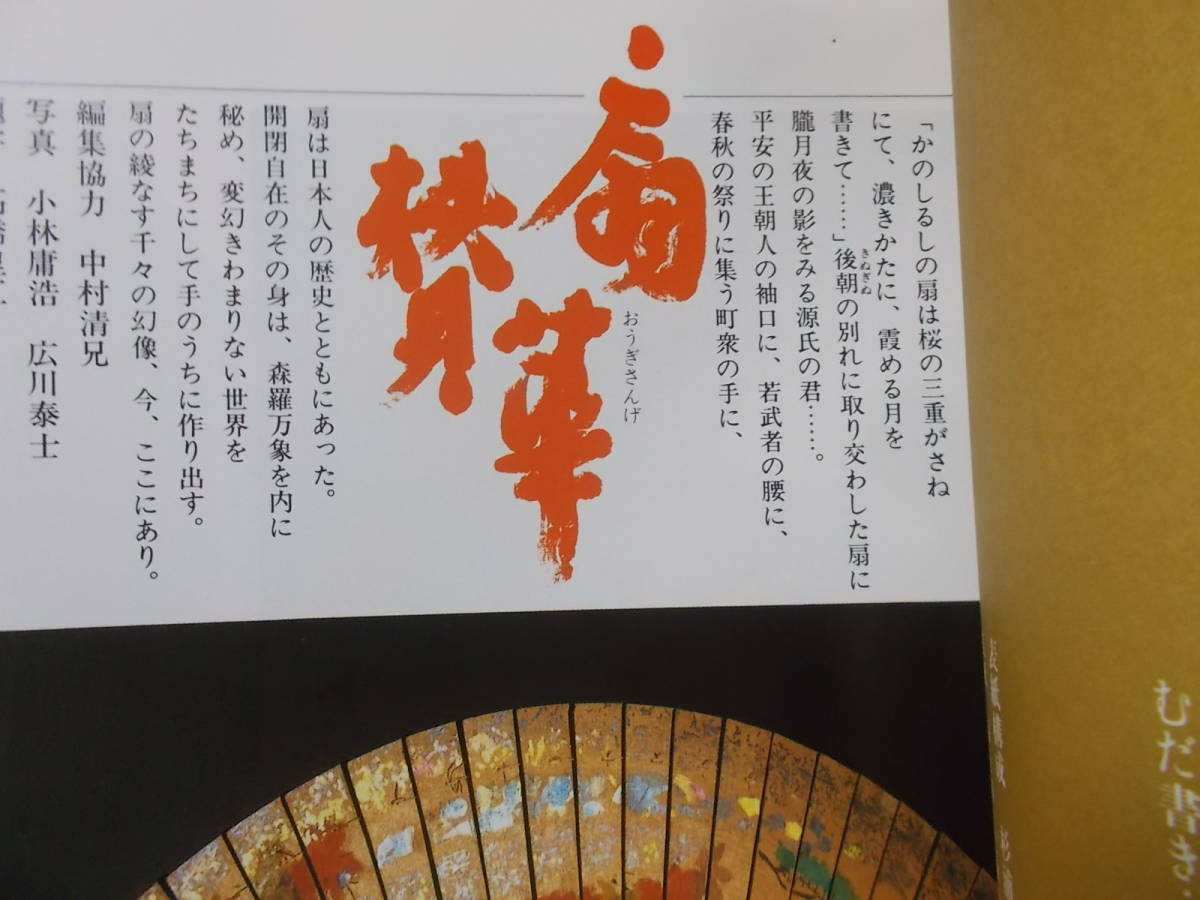 「かのしるしの扇は桜の三重がさね
にて、濃きかたに、霞める月を
書きて……」後朝の別れに取り交わした扇に
きぬぎぬ
朧月夜の影をみる源氏の君……。
平安の王朝人の袖口に、若武者の腰に、
春秋の祭りに集う町衆の手に、
扇
讃華
おうぎさんげ
扇は日本人の歴史とともにあった。
開閉自在のその身は、森羅万象を内に
秘め、変幻きわまりない世界を
たちまちにして手のうちに作り出す。
扇の綾なす千々の幻像、今、ここにあり。
編集協力 中村清兄
写真 小林庸浩 広川泰士
表紙構成
むだ書き